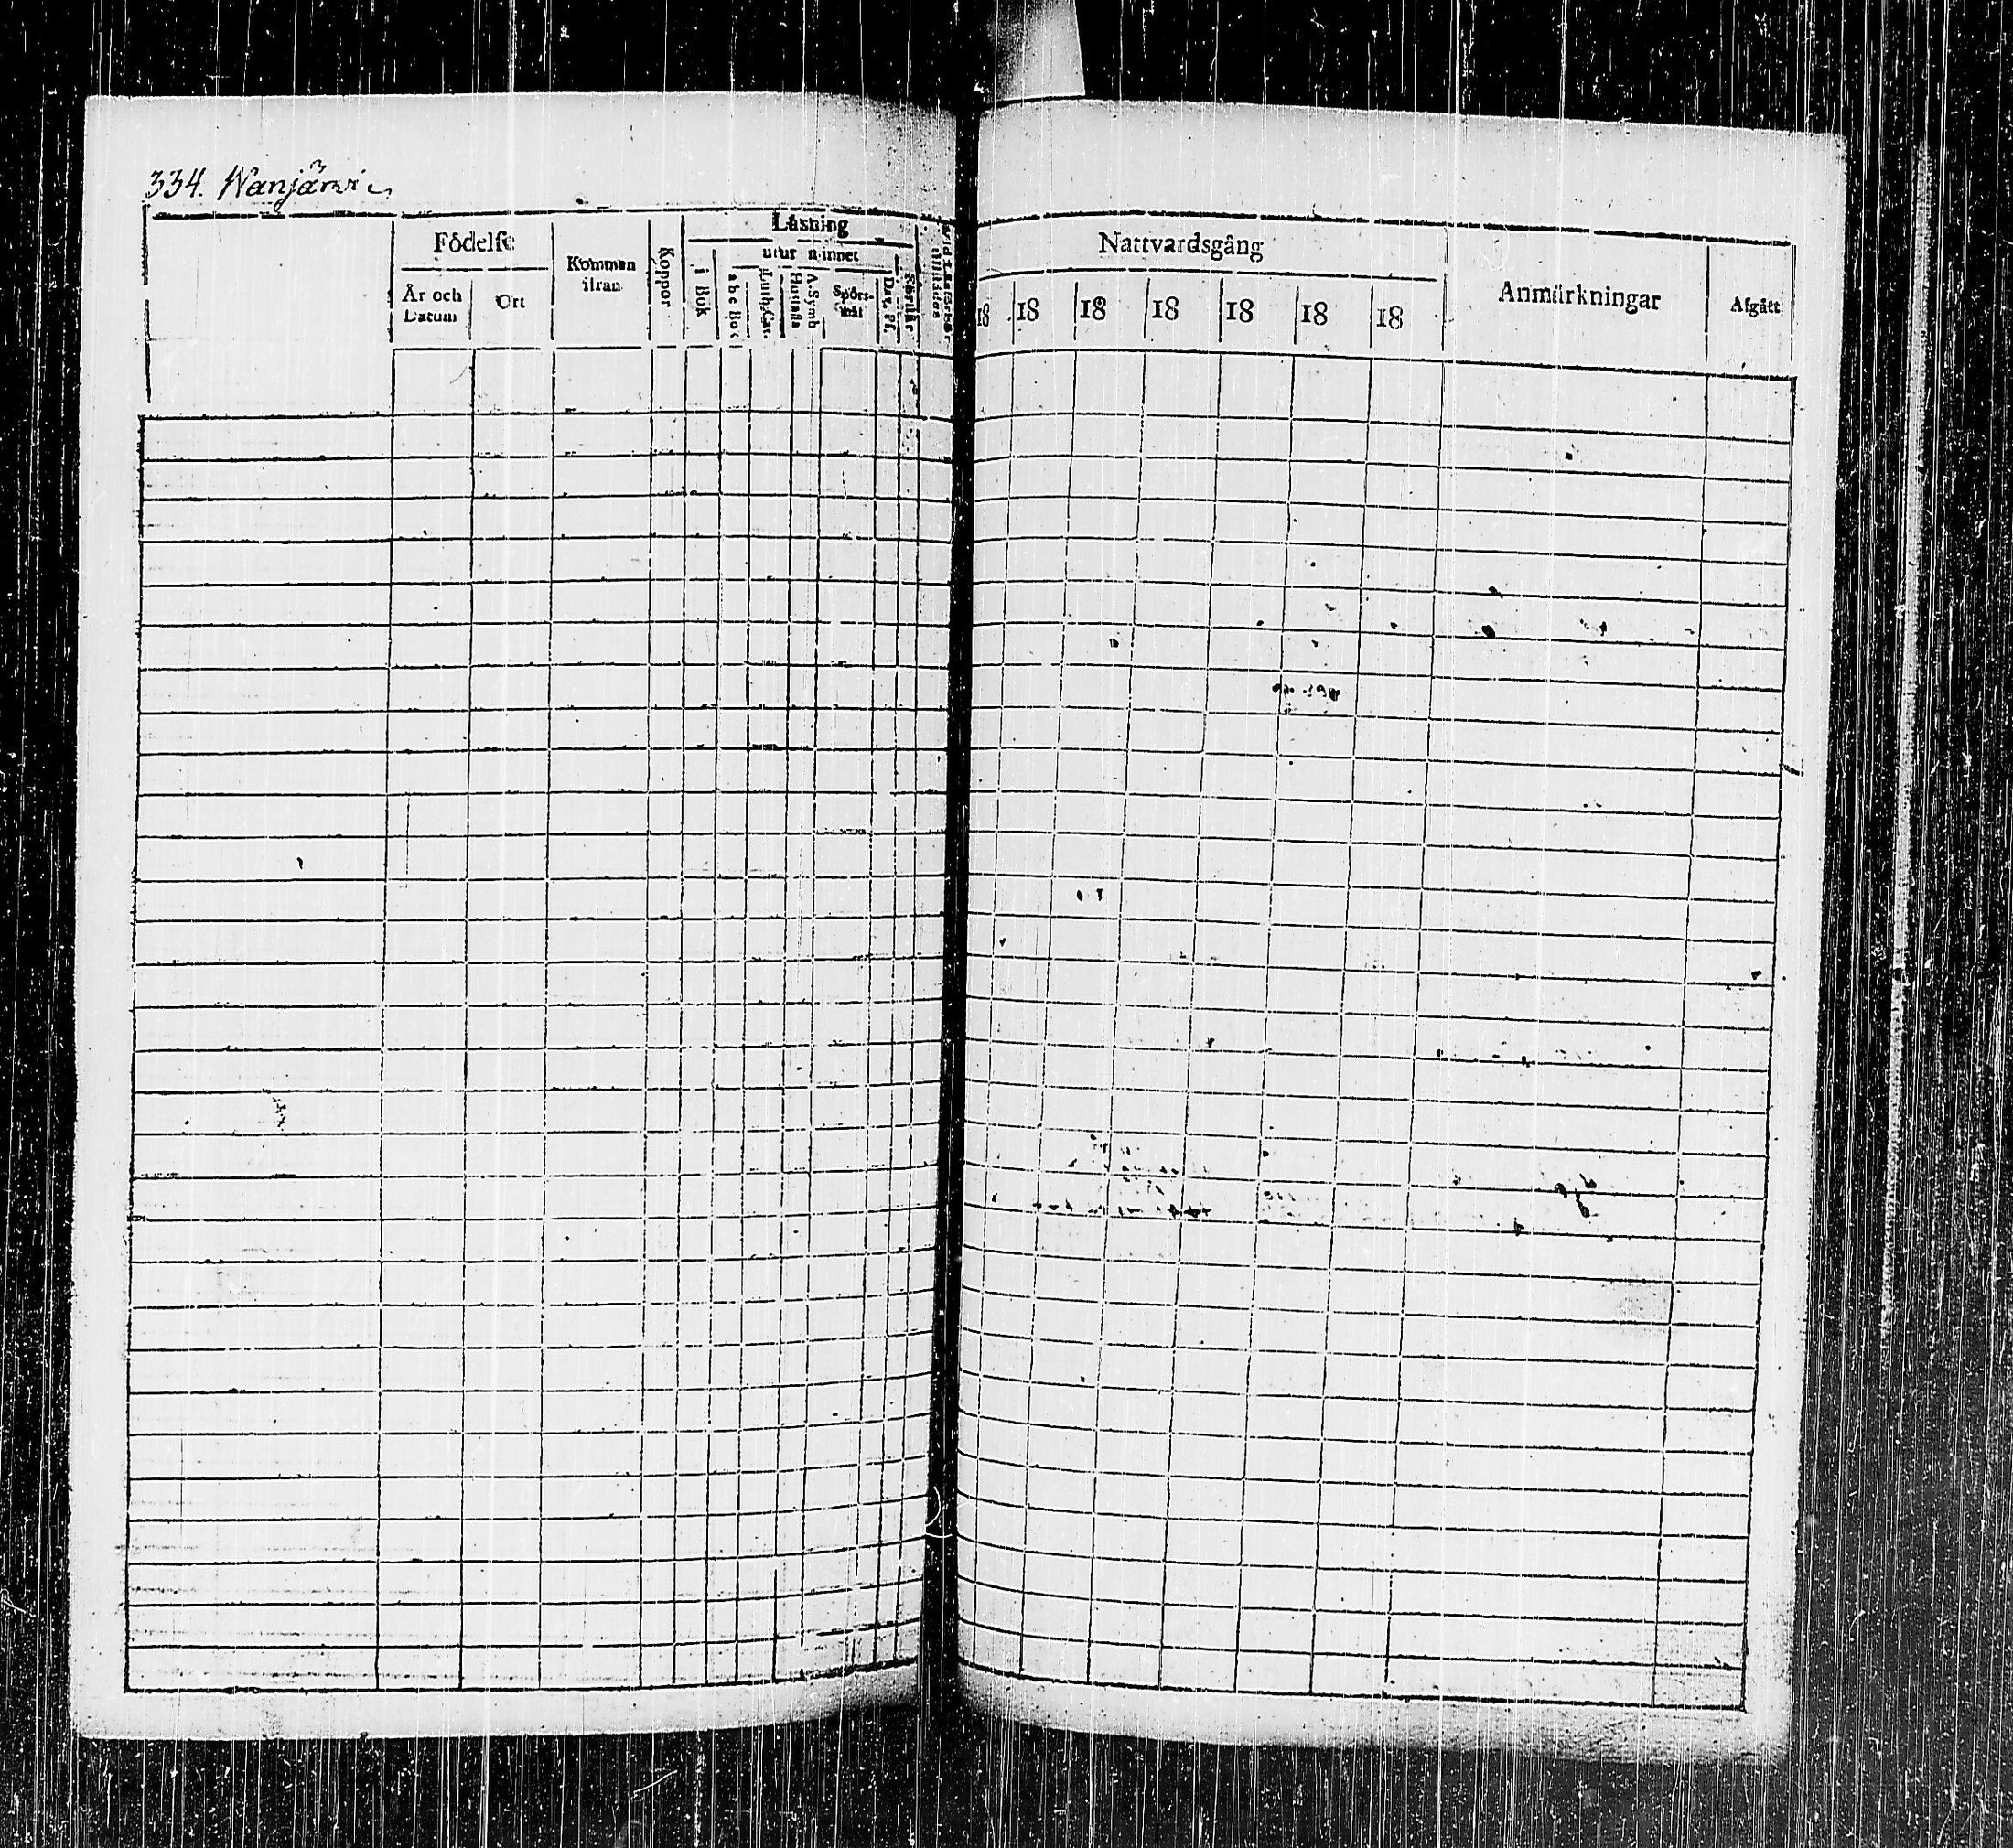 334. Wanjärvi
Födelse
År och Datum
Ort
Kommen ifrån
Koppor
Läsning
utur minnet
i Bok
abc Bok
Luth. Cat.
Hustafla
A. Symb
Spörsmål
Dav. Ps.
Nattvardsgång
18 18 18 18 18 18 18
Anmärkningar
Afgått